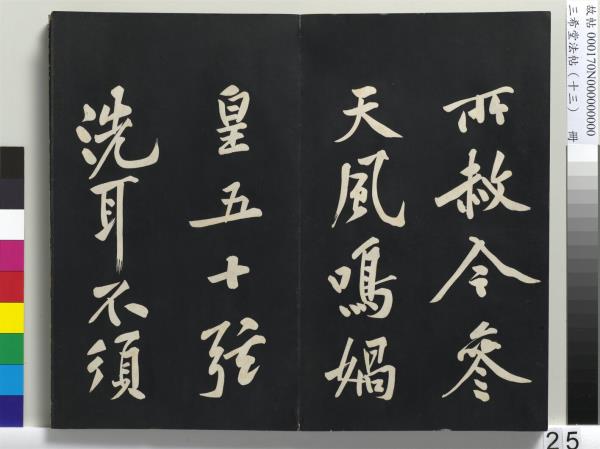 所赦今參
天風鳴媧
皇五十弦
洗耳不須
故帖 000170N000000000
三希堂法帖(十三) 冊
25